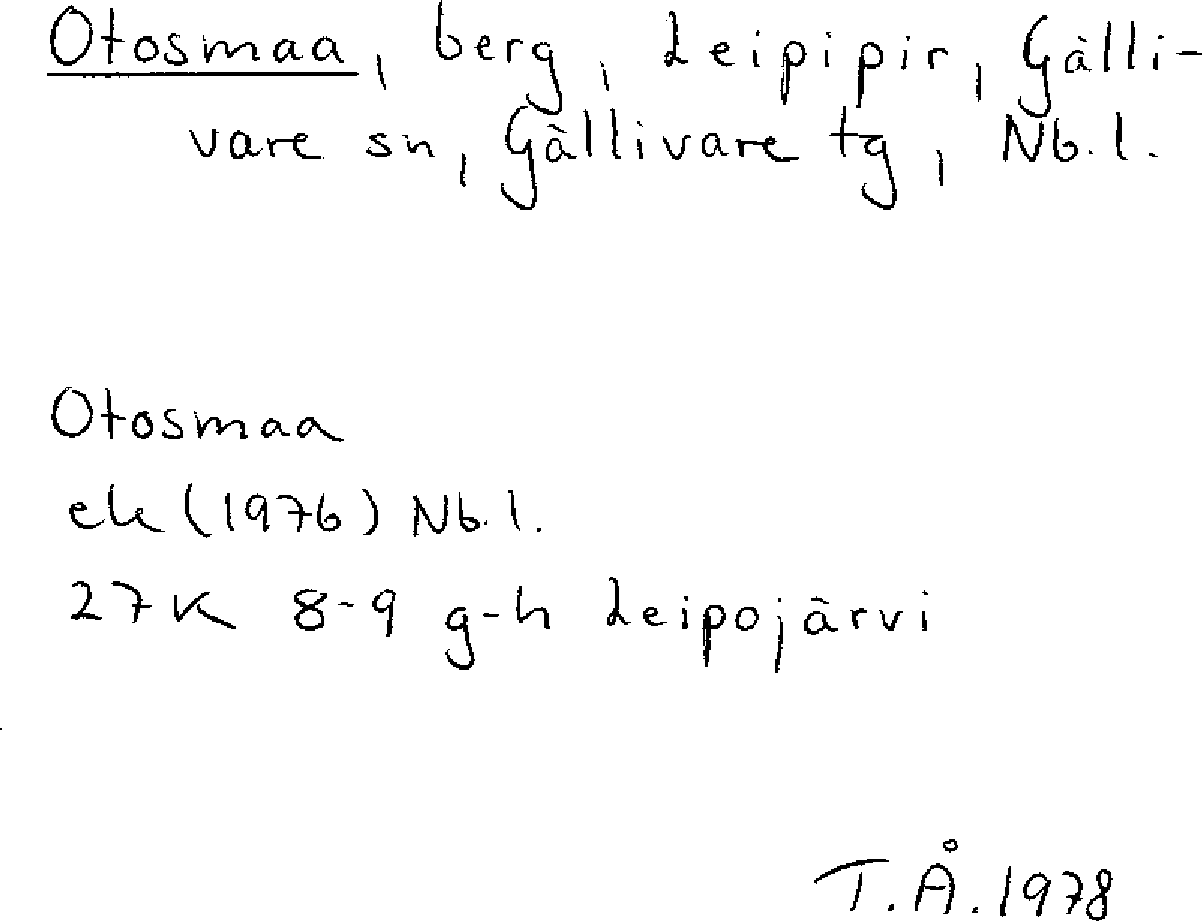 Otosmaa, berg, Leipipir, Gälli-
vare sn, Gällivare tg, Nb.l.
Otosmaa
ek (1976) Nb.l.
27K 8-9 g-h Leipojärvi
T.Å. 1978